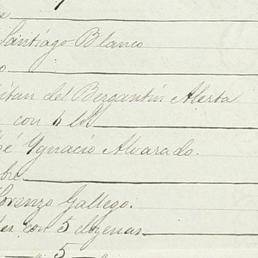 Santiago Blanco
o
itan del Bergantin Alerta
con 6 lo
sé Ygnacio Alvarado.
bre
Lorenzo Gallego.
con 5
5